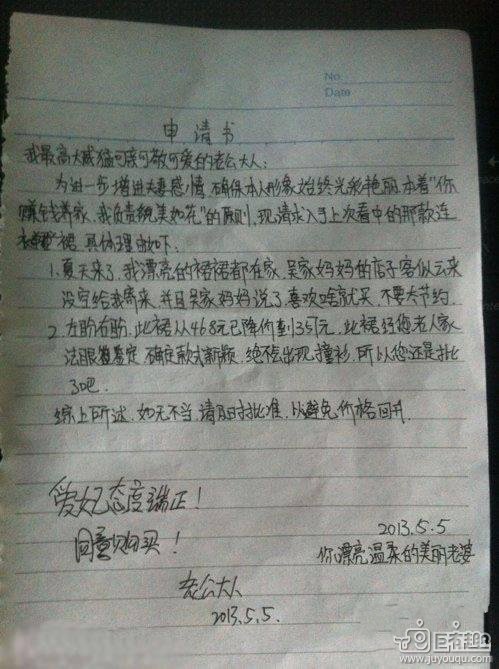 No.
Date
申请书
我最高大威猛可亲可敬可爱的老公大人:
为进一步增进夫妻感情,确保本人形象始终光彩艳丽,本着"你
赚钱养家,我负责貌美如花"的原则,现请求入手上次看中的那款连
衣裙,具体理由如下:
1.夏天来了,我漂亮的裙裙都在家,吴家妈妈的店子客似云来
没空给我寄来,并且吴家妈妈说了喜欢啥就买,不要太节约.
2.左盼右盼,此裙从468元已降价到351元,此裙经您老人家
法眼鉴定,确定款式新颖,绝不出现撞衫,所以您还是批
了吧.
综上所述,如无不当,请及时批准,以避免价格回升.
爱妃态度端正!
同意购买!
2013.5.5
你漂亮温柔的美丽老婆
老公大人
2013.5.5.
www.juyouqu.com